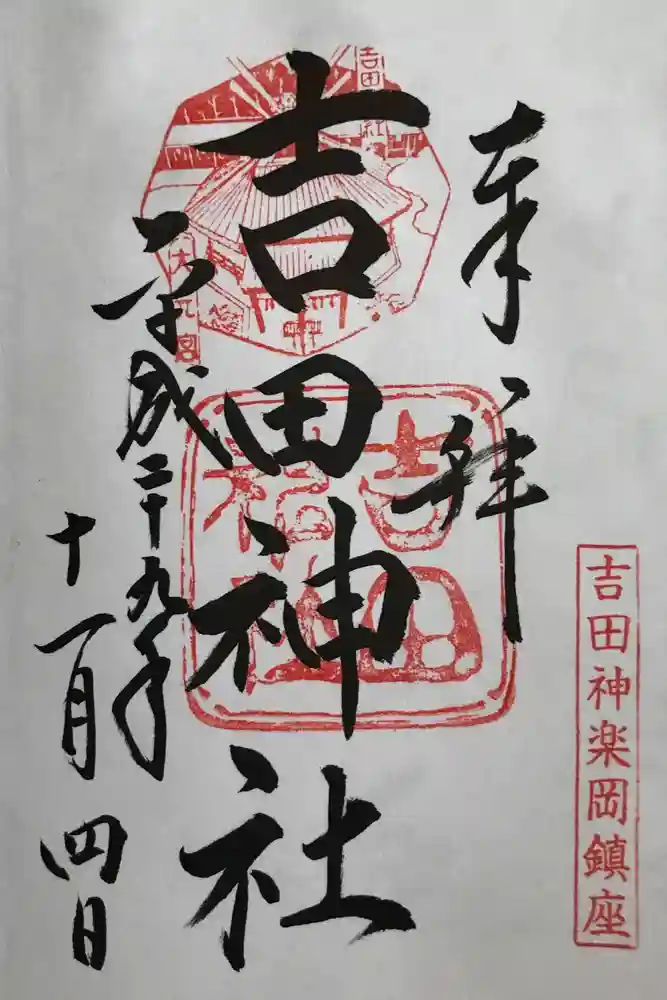 吉田神楽岡鎮座
奉拝
吉田神社
平成二十九年
十一月四日
吉田
神社
吉田社
大元宮